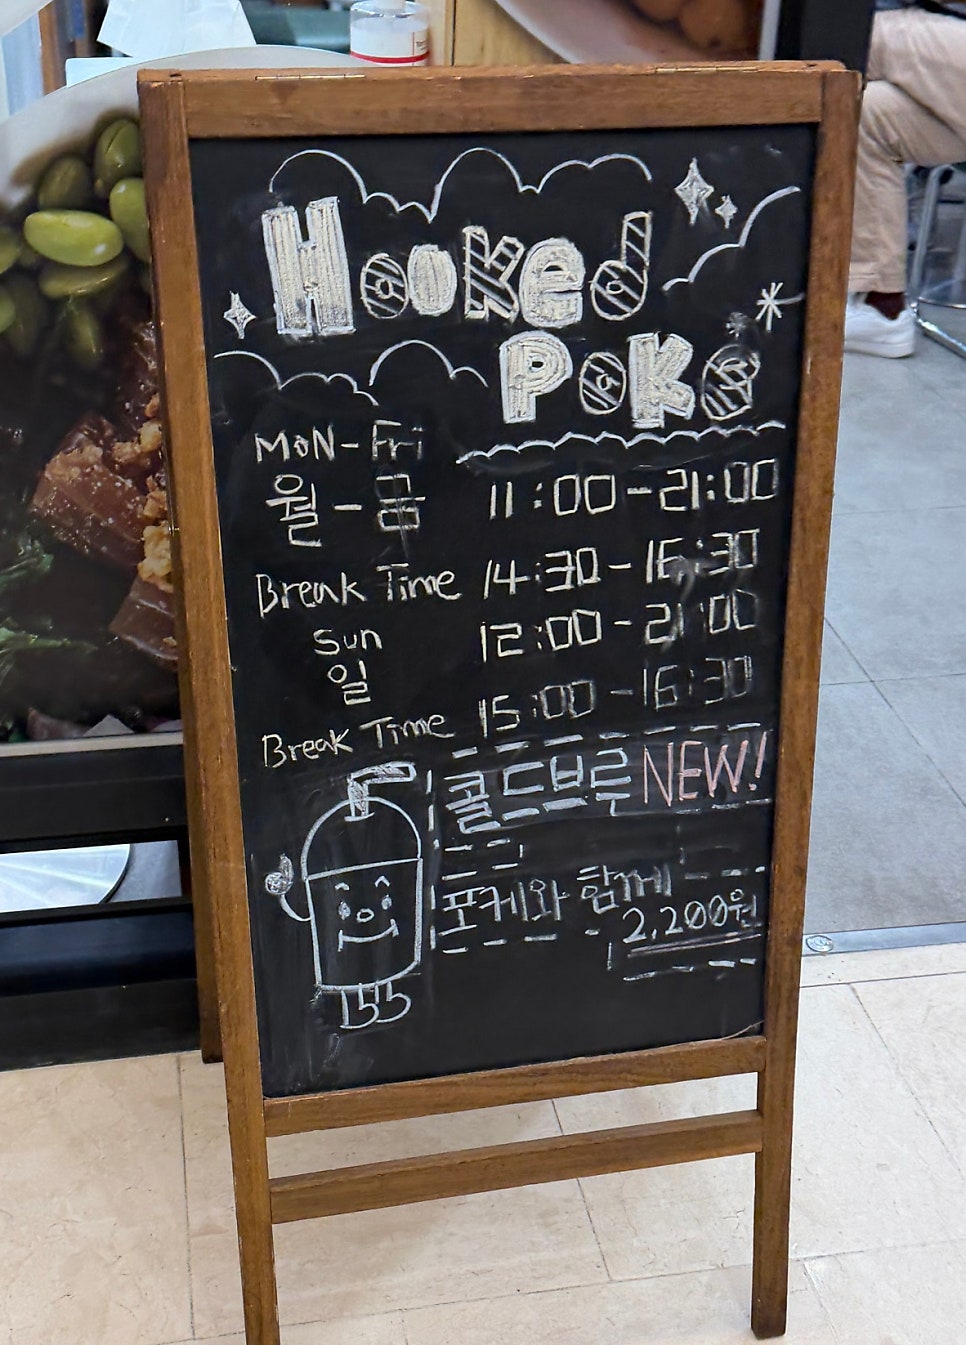 Hooked
Poke
MON - Fri
월 - 금
11:00 - 21:00
Break Time 14:30 - 16:30
Sun
일
12:00 - 21:00
Break Time 15:00 - 16:30
콜드브루 NEW!
포케와 함께
2,200원